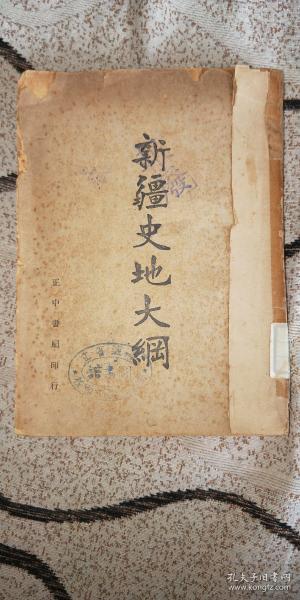 新疆史地大綱
正中書局印行
孔夫子旧书网
www.kongfz.com